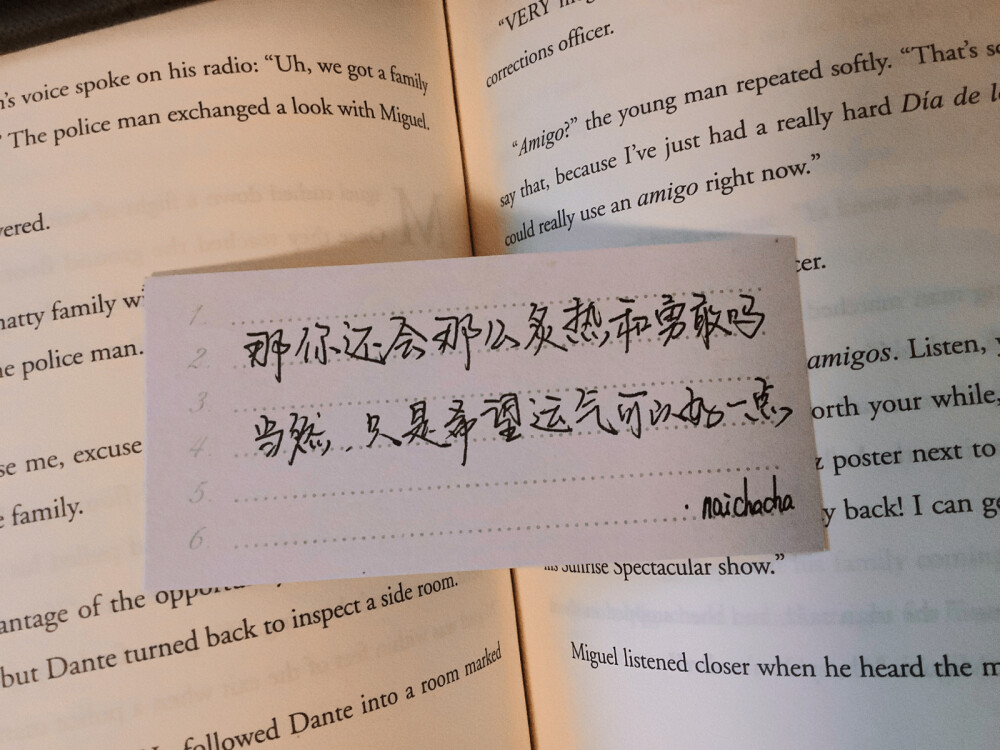 n's voice spoke on his radio: “Uh, we got a family
The police man exchanged a look with Miguel.
vered.
hatty family wi
e police man.
se me, excuse
e family.
antage of the opportu
but Dante turned back to inspect a side room.
followed Dante into a room marked
“VERY
corrections officer.
“Amigo?” the young man repeated softly. “That's so
say that, because I've just had a really hard Día de l
could really use an amigo right now.”
cer.
amigos. Listen, y
orth your while,
z poster next to
y back! I can ge
Sunrise Spectacular show.”
Miguel listened closer when he heard the m
1.
2. 那你还会那么炙热和勇敢吗
3.
4. 当然,只是希望运气可以好一点
5.
· naichacha
6.